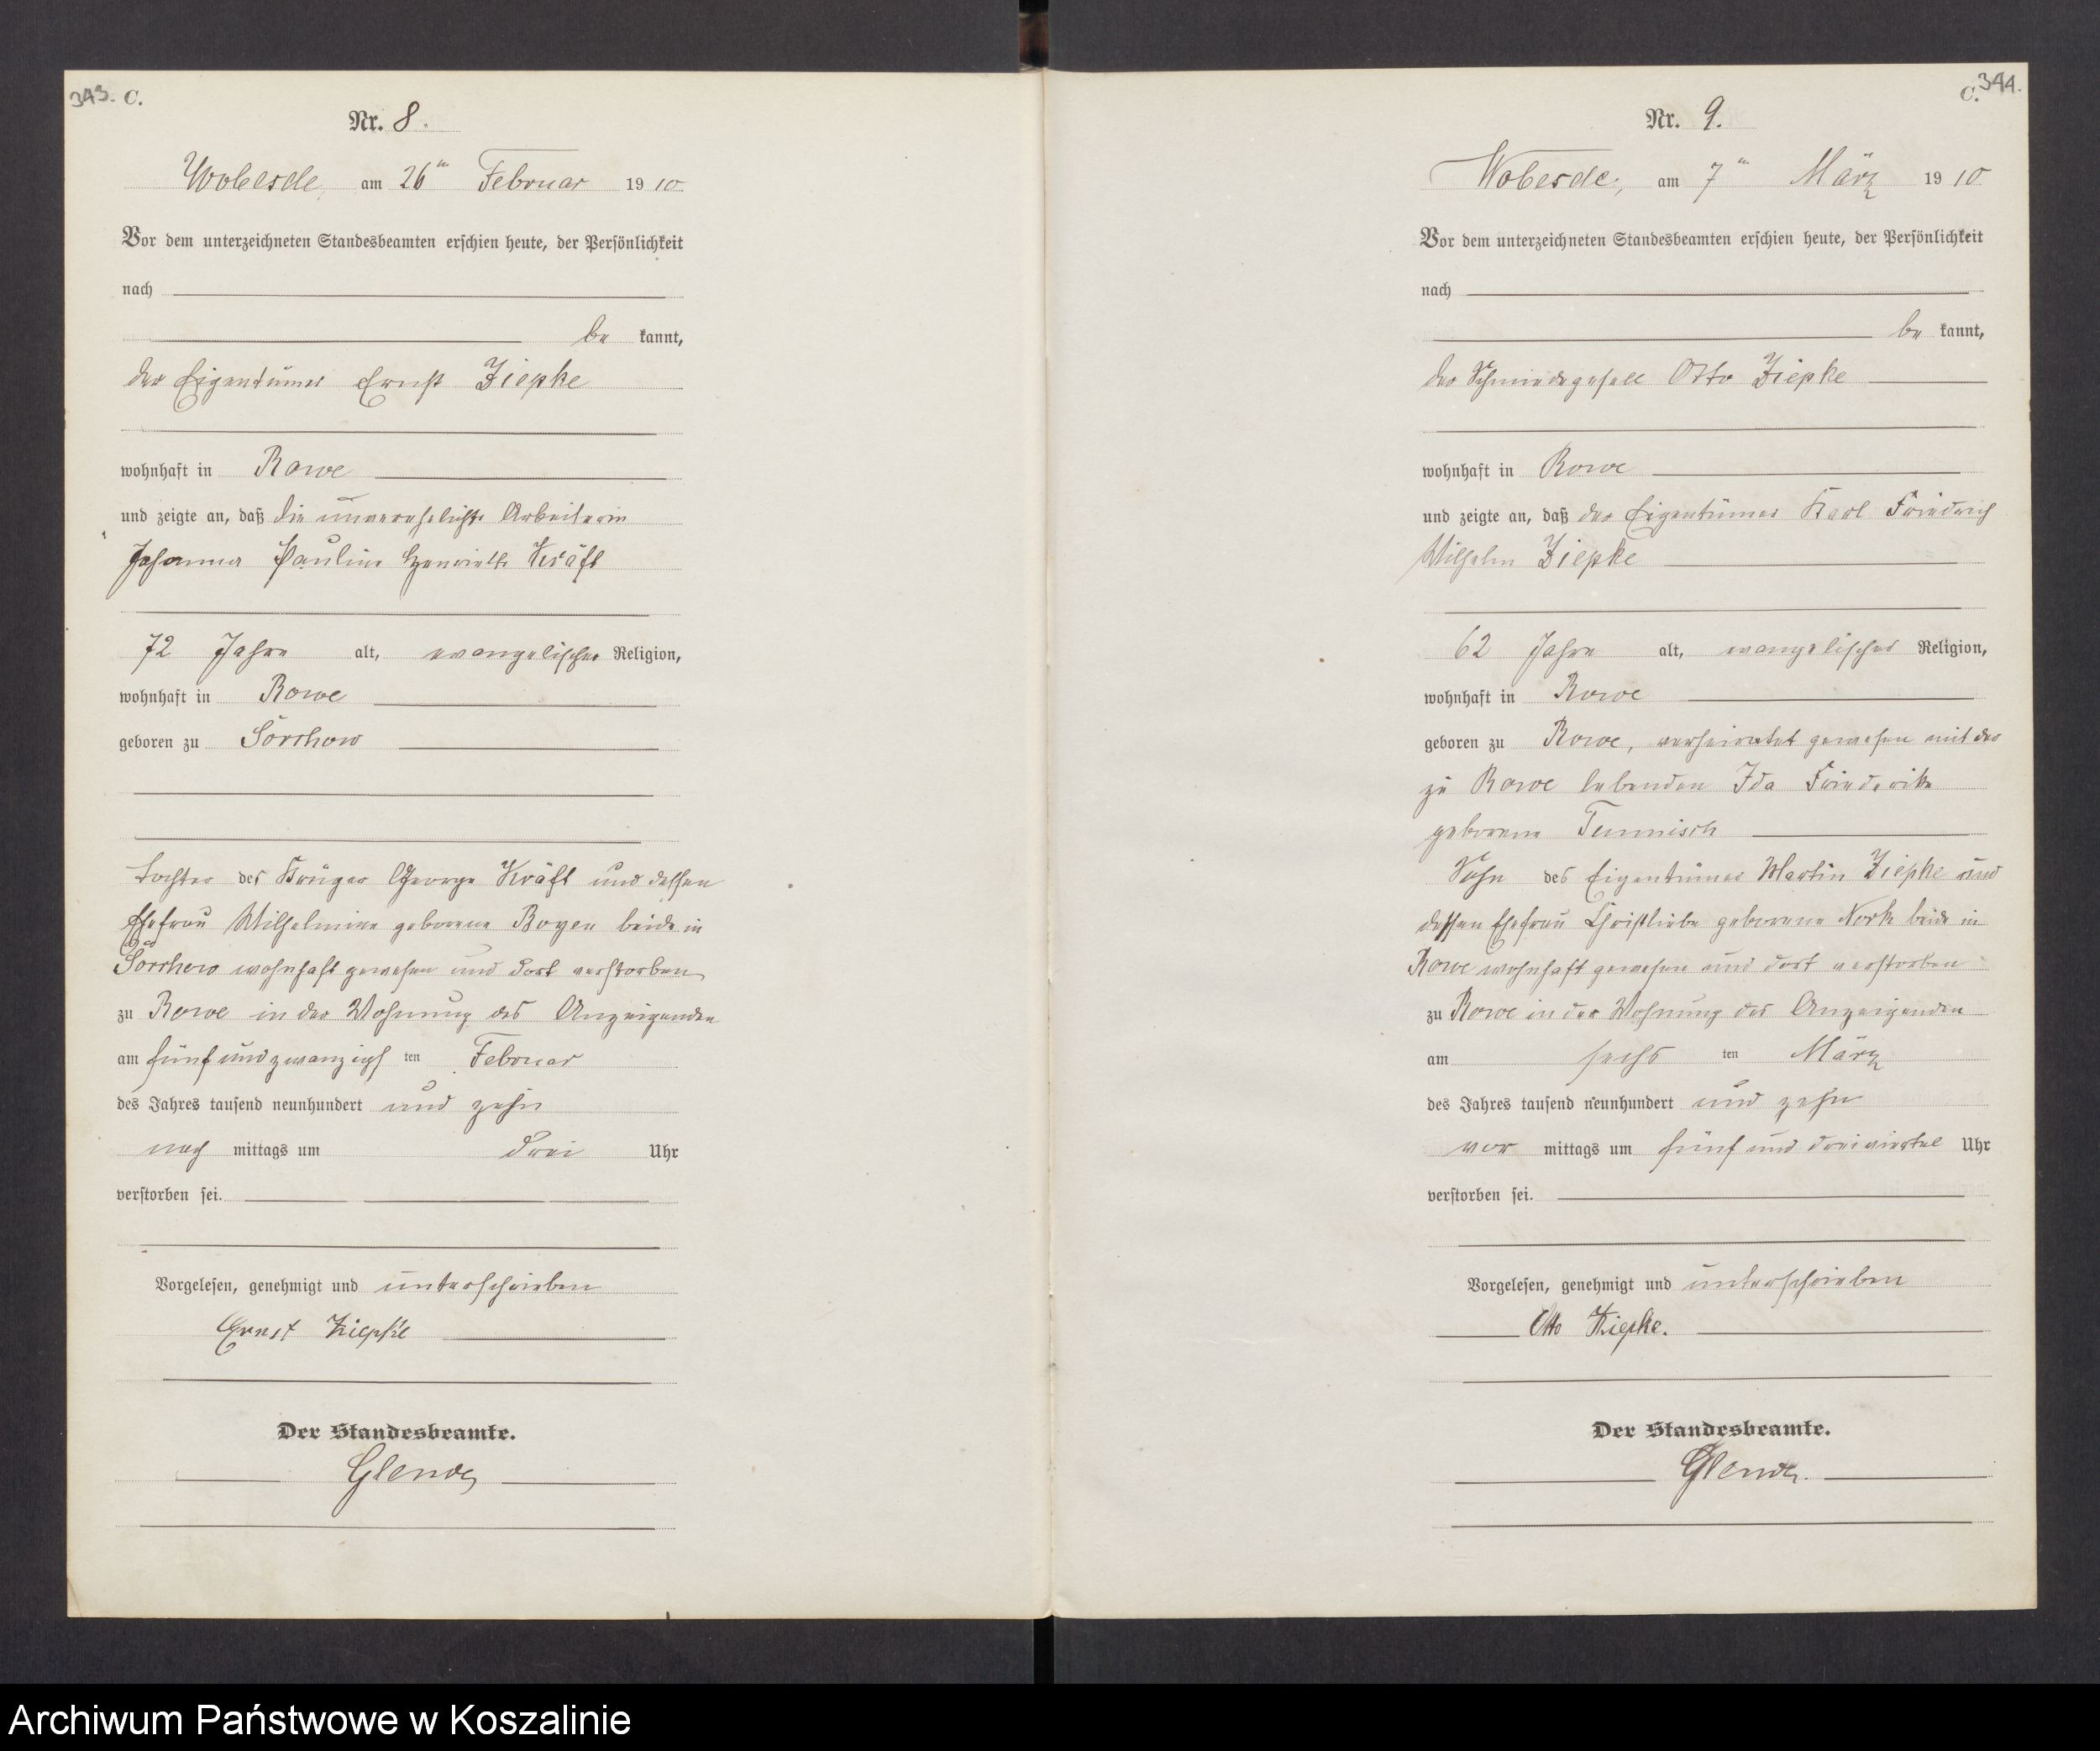 343. C.
Nr. 8.
Wobesde, am 26ten Februar 1910.
Vor dem unterzeichneten Standesbeamten erschien heute, der Persönlichkeit
nach
be kannt,
der Eigentümer Ernst Ziepke
wohnhaft in Rowe
und zeigte an, daß die unverehelichte Arbeiterin
Johanna Pauline Henriette Kräft
72 Jahre alt, evangelischer Religion,
wohnhaft in Rowe
geboren zu Sorchow
Tochter des Krüger George Kräft und dessen
Ehefrau Wilhelmine geborene Boyen beide in
Sorchow wohnhaft gewesen und dort verstorben
zu Rowe in der Wohnung des Anzeigenden
am fünf und zwanzigsten Februar
des Jahres tausend neunhundert und zehn
nach mittags um drei Uhr
verstorben sei.
Vorgelesen, genehmigt und unterschrieben
Ernst Ziepke
Der Standesbeamte.
C. 344.
Nr. 9.
Wobesde, am 7ten März 1910
Vor dem unterzeichneten Standesbeamten erschien heute, der Persönlichkeit
nach
be kannt,
der Schmiedegeselle Otto Ziepke
wohnhaft in Rowe
und zeigte an, daß der Eigentümer Karl Friedrich
Wilhelm Ziepke
62 Jahre alt, evangelischer Religion,
wohnhaft in Rowe
geboren zu Rowe, verheiratet gewesen mit der
zu Rowe lebenden Ida Friederike
geborene
Sohn des Eigentümer Martin Ziepke und
dessen Ehefrau Christliebe geborene Nork beide in
Rowe wohnhaft gewesen und dort verstorben
zu Rowe in der Wohnung des Anzeigenden
am sechsten März
des Jahres tausend neunhundert und zehn
vor mittags um fünf und dreiviertel Uhr
verstorben sei.
Vorgelesen, genehmigt und unterschrieben
Otto Ziepke.
Der Standesbeamte.
Archiwum Państwowe w Koszalinie